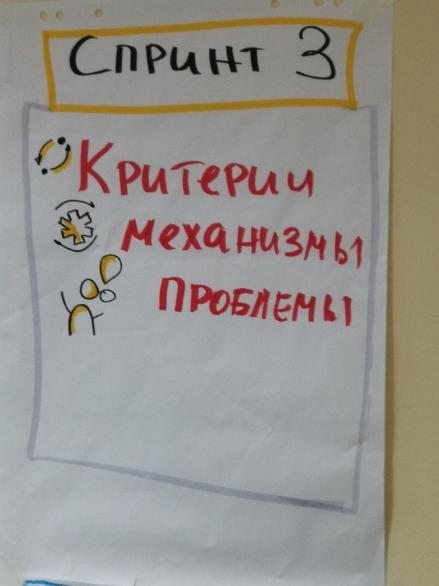 Спринт 3
Критерии
механизмы
проблемы